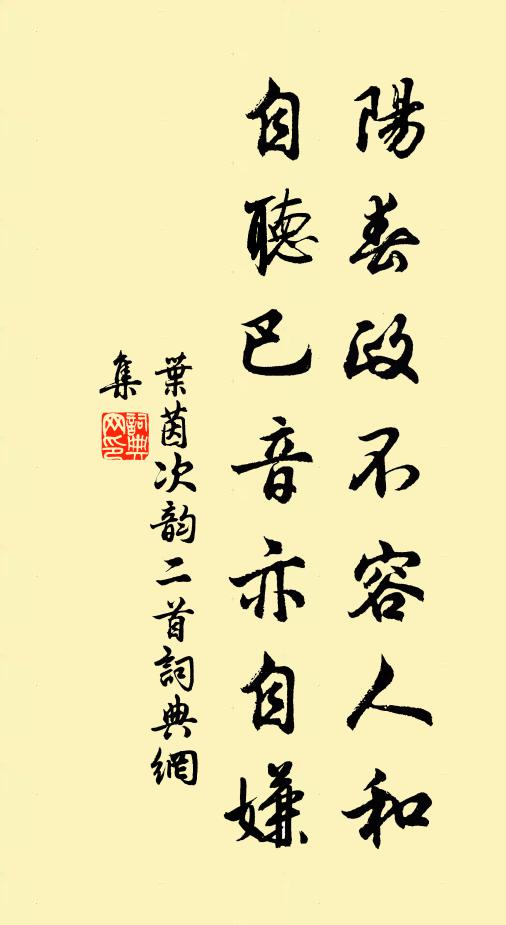 陽春政不容人和
自聽巴音亦自嫌
葉茵次韵二首詞典網
集
詞典
网印